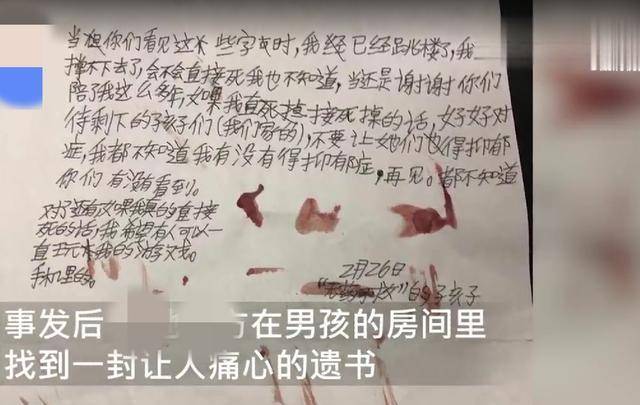 当想你们看见这些字时,我经已经跳楼了,我
撑不下去了,会不会直接死我也不知道,当还是谢谢你们
陪了我这么多年,如果我直接死掉的话,好好对
待剩下的孩子们(我们家的),不要让她们也得抑郁
症,我都不知道我有没有得抑郁症,再见。都不知道
你们有没有看到。
对了还有如果我真的直接
死的话,我希望有人可以一
直玩我的游戏。
手机里的。
2月26日
的孩子
事发后 在男孩的房间里
找到一封让人痛心的遗书